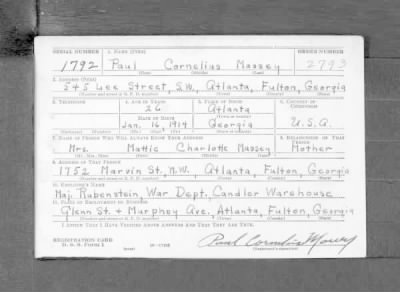 SERIAL NUMBER 1. NAME (Print)
1792 Paul Cornelius Massey 2793
(First) (Middle) (Last)
2. ADDRESS (Print)
545 Lee Street, S.W., Atlanta, Fulton, Georgia
3. TELEPHONE 4. AGE IN YEARS 5. PLACE OF BIRTH 6. COUNTRY OF CITIZENSHIP
26 Atlanta
DATE OF BIRTH
Jan. 16, 1914 Georgia U.S.A.
7. NAME OF PERSON WHO WILL ALWAYS KNOW YOUR ADDRESS 8. RELATIONSHIP OF THAT PERSON
Mrs. Mattie Charlotte Massey Mother
9. ADDRESS OF THAT PERSON
1752 Marvin St., N.W. Atlanta, Fulton, Georgia
10. EMPLOYER'S NAME
Maj. Rubenstein, War Dept. Candler Warehouse
11. PLACE OF EMPLOYMENT OR BUSINESS
Glenn St. + Murphey Ave. Atlanta, Fulton, Georgia
I AFFIRM THAT I HAVE VERIFIED ABOVE ANSWERS AND THAT THEY ARE TRUE.
REGISTRATION CARD
D. S. S. Form 1
Paul Cornelius Massey
(Registrant's signature)